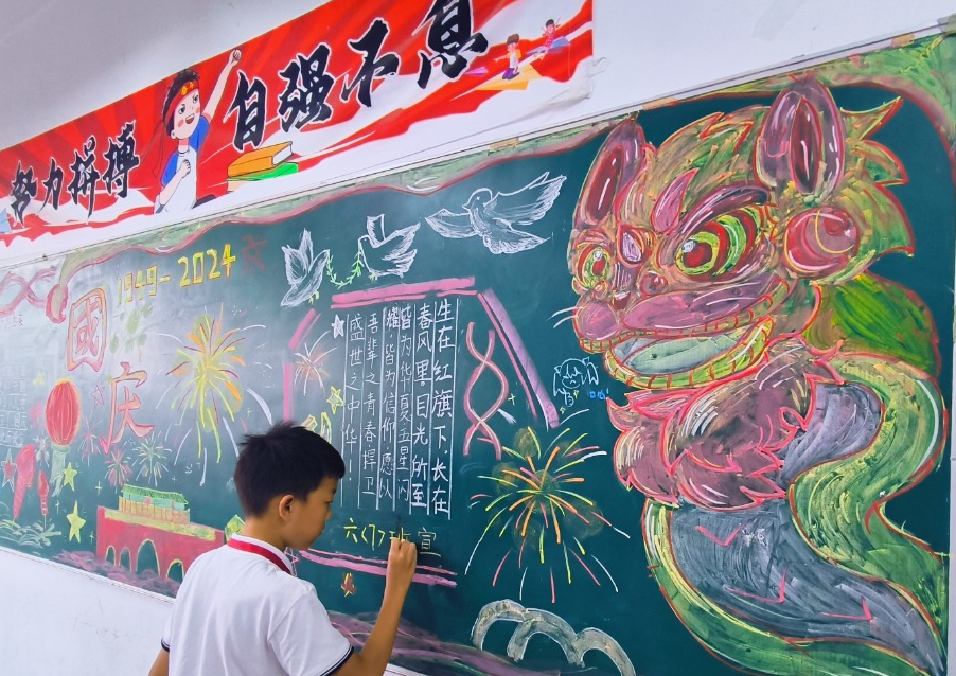 努力拼搏 自强不息
1949-2024
國
庆
生在红旗下,长在
春风里,目光所至
皆为华夏,五星闪
耀,皆为信仰,愿以
吾辈之青春,捍卫
盛世之中华!
六<1>班 宣